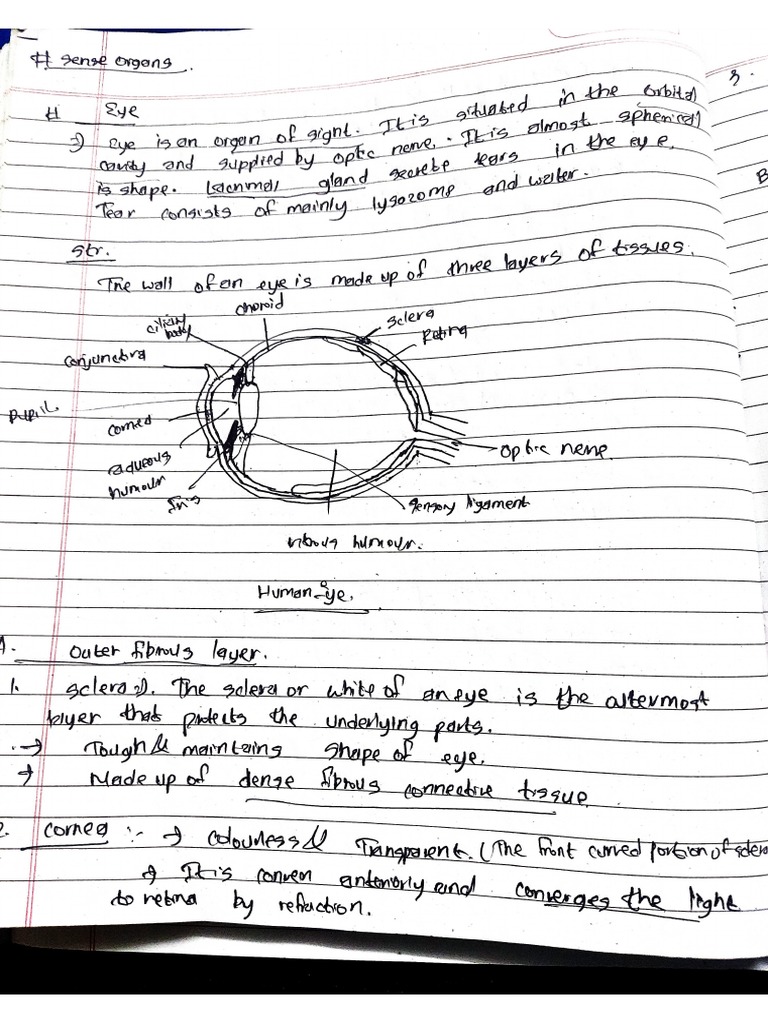 # sense organs.
# Eye
⇒ Eye is an organ of sight. It is situated in the orbital
cavity and supplied by optic nerve. It is almost spherical
is shape. lacrimal gland secrete tears in the eye.
Tear consists of mainly lysozome and water.
str.
The wall of an eye is made up of three layers of tissues.
choroid
ciliary
body
sclera
Retina
conjunctiva
pupil
cornea
aqueous
humour
Iris
optic nerve
sensory ligament
vitrous humour.
Human eye.
A. outer fibrous layer.
1. sclera ⇒. The sclera or white of an eye is the altermost
layer that protects the underlying parts.
→ Tough & maintains shape of eye.
→ Made up of dense fibrous connective tissue
2. cornea :- → colourless & Transparent. (The front curved portion of sclera
→ It is convex anteriorly and converges the light
to retina by refraction.
3.
B